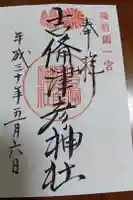 備前國一宮
奉拝
吉備津彦神社
平成三十年五月六日